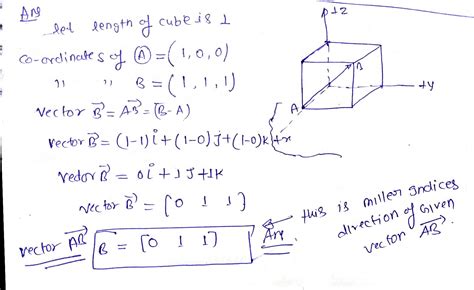 Ans
let length of cube is 1
co-ordinates of A = (1, 0, 0)
" " B = (1, 1, 1)
vector B = AB = (B - A)
vector B = (1-1)i + (1-0)J + (1-0)k
vector B = 0i + 1J + 1k
vector B = [0 1 1]
vector AB B = [0 1 1] Ans.
this is miller indices
direction of given
vector AB.
+z
A
B
+y
+x